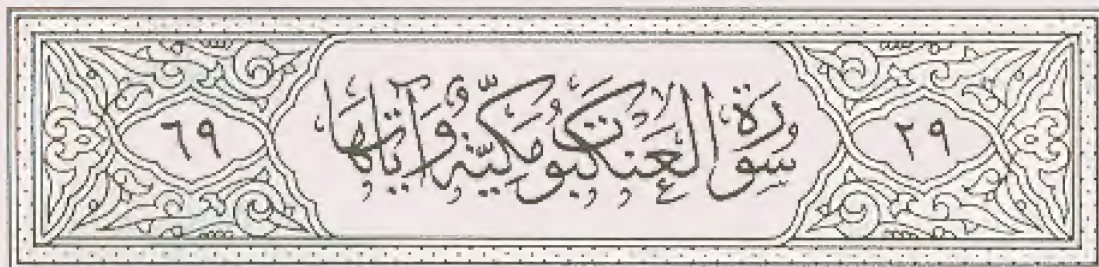 ٢٩ سورة العنكبوت مكية وآياتها ٦٩